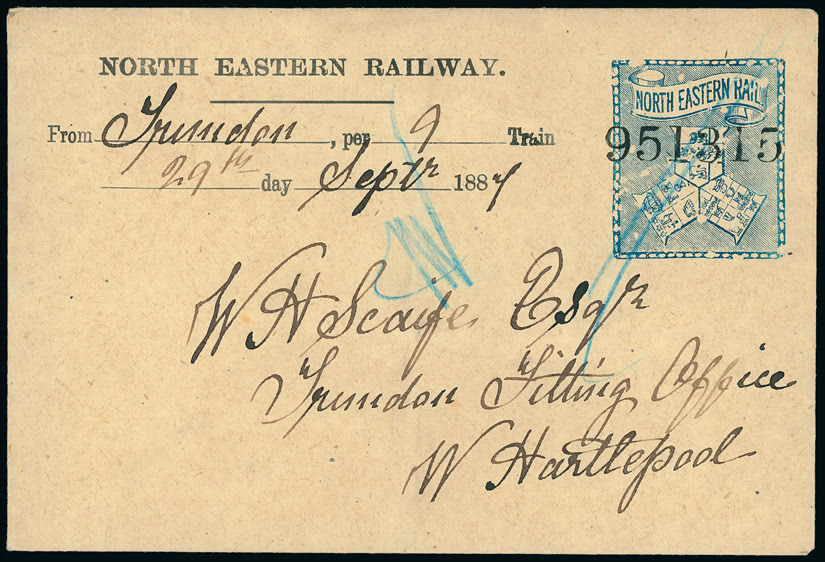 NORTH EASTERN RAILWAY.
NORTH EASTERN RAIL
951315
From Trimdon, per 9 Train
29th day Septr 1887
W H Scaife Esqr
Trimdon Fitting Office
W Hartlepool